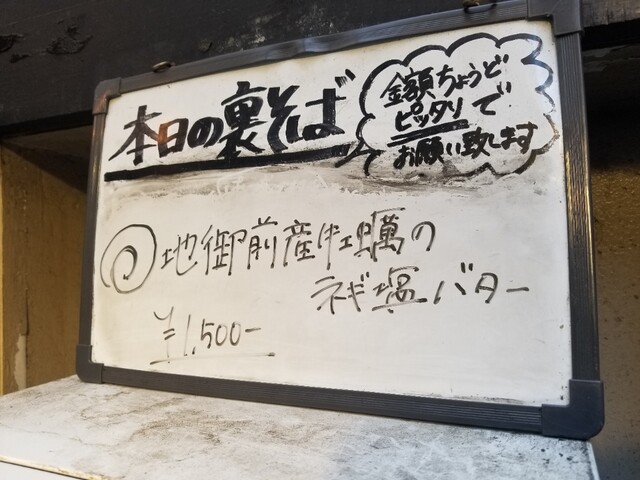 本日の裏そば
金額ちょうど
ピッタリで
お願い致します
地御前産牡蠣の
ネギ塩バター
¥1,500-